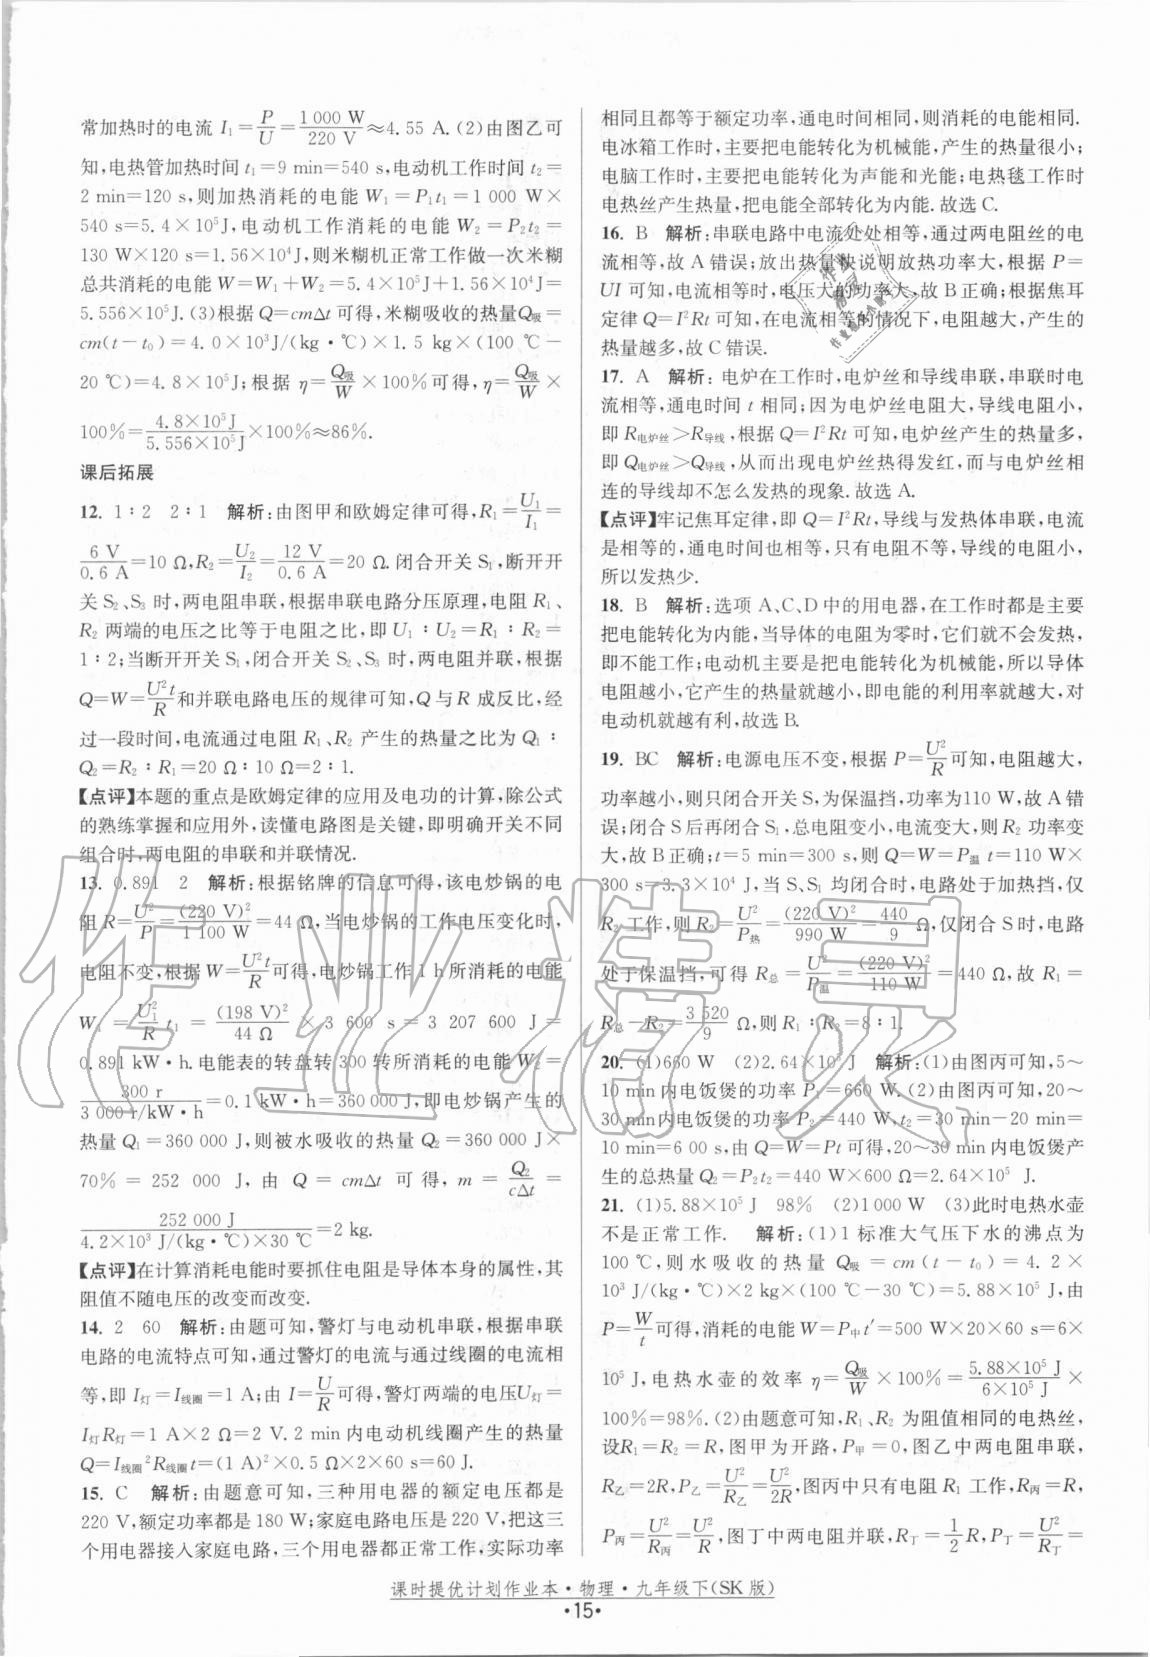 常加热时的电流 I₁=P/U=1 000 W/220 V≈4.55 A.(2)由图乙可
知,电热管加热时间 t₁=9 min=540 s,电动机工作时间 t₂=
2 min=120 s,则加热消耗的电能 W₁=P₁t₁=1 000 W×
540 s=5.4×10⁵J,电动机工作消耗的电能 W₂=P₂t₂=
130 W×120 s=1.56×10⁴J,则米糊机正常工作一次米糊
总共消耗的电能 W=W₁+W₂=5.4×10⁵J+1.56×10⁴J=
5.556×10⁵J.(3)根据 Q=cmΔt 可得,米糊吸收的热量Q吸=
cm(t-t₀)=4.0×10³J/(kg·℃)×1.5 kg×(100 ℃-
20 ℃)=4.8×10⁵J;根据 η=Q吸/W×100%可得,η=Q吸/W×
100%=4.8×10⁵J/5.556×10⁵J×100%≈86%.
课后拓展
12. 1∶2 2∶1 解析:由图甲和欧姆定律可得,R₁=U₁/I₁=
6 V/0.6 A=10 Ω,R₂=U₂/I₂=12 V/0.6 A=20 Ω.闭合开关 S₁,断开开
关 S₂、S₃ 时,两电阻串联,根据串联电路分压原理,电阻 R₁、
R₂ 两端的电压之比等于电阻之比,即 U₁∶U₂=R₁∶R₂=
1∶2;当断开开关 S₁,闭合开关 S₂、S₃ 时,两电阻并联,根据
Q=W=U²t/R和并联电路电压的规律可知,Q 与 R 成反比,经
过一段时间,电流通过电阻 R₁、R₂ 产生的热量之比为 Q₁∶
Q₂=R₂∶R₁=20 Ω∶10 Ω=2∶1.
【点评】本题的重点是欧姆定律的应用及电功的计算,除公式
的熟练掌握和应用外,读懂电路图是关键,即明确开关不同
组合时,两电阻的串联和并联情况.
13. 0.891 2 解析:根据铭牌的信息可得,该电炒锅的电
阻 R=U²/P=(220 V)²/1 100 W=44 Ω,当电炒锅的工作电压变化时,
电阻不变,根据 W=U²t/R可得,电炒锅工作 1 h 所消耗的电能
W₁=U₁²/R t₁=(198 V)²/44 Ω×3 600 s=3 207 600 J=
0.891 kW·h.电能表的转盘转 300 转所消耗的电能 W₂=
300 r/3 000 r/kW·h=0.1 kW·h=360 000 J,即电炒锅产生的
热量 Q₁=360 000 J,则被水吸收的热量 Q₂=360 000 J×
70%=252 000 J,由 Q=cmΔt 可得,m=Q₂/cΔt=
252 000 J/4.2×10³ J/(kg·℃)×30 ℃=2 kg.
【点评】在计算消耗电能时要抓住电阻是导体本身的属性,其
阻值不随电压的改变而改变.
14. 2 60 解析:由题可知,警灯与电动机串联,根据串联
电路的电流特点可知,通过警灯的电流与通过线圈的电流相
等,即 I灯=I线圈=1 A;由 I=U/R可得,警灯两端的电压U灯=
I灯R灯=1 A×2 Ω=2 V.2 min内电动机线圈产生的热量
Q=I线圈²R线圈t=(1 A)²×0.5 Ω×2×60 s=60 J.
15. C 解析:由题意可知,三种用电器的额定电压都是
220 V,额定功率都是 180 W;家庭电路电压是 220 V,把这三
个用电器接入家庭电路,三个用电器都正常工作,实际功率
相同且都等于额定功率,通电时间相同,则消耗的电能相同.
电冰箱工作时,主要把电能转化为机械能,产生的热量很小;
电脑工作时,主要把电能转化为声能和光能;电热毯工作时
电热丝产生热量,把电能全部转化为内能.故选 C.
16. B 解析:串联电路中电流处处相等,通过两电阻丝的电
流相等,故 A 错误;放出热量快说明放热功率大,根据 P=
UI 可知,电流相等时,电压大的功率大,故 B 正确;根据焦耳
定律 Q=I²Rt 可知,在电流相等的情况下,电阻越大,产生的
热量越多,故 C 错误.
17. A 解析:电炉在工作时,电炉丝和导线串联,串联时电
流相等,通电时间 t 相同;因为电炉丝电阻大,导线电阻小,
即 R电炉丝>R导线,根据 Q=I²Rt 可知,电炉丝产生的热量多,
即 Q电炉丝>Q导线,从而出现电炉丝热得发红,而与电炉丝相
连的导线却不怎么发热的现象.故选 A.
【点评】牢记焦耳定律,即 Q=I²Rt,导线与发热体串联,电流
是相等的,通电时间也相等,只有电阻不等,导线的电阻小,
所以发热少.
18. B 解析:选项 A、C、D 中的用电器,在工作时都是主要
把电能转化为内能,当导体的电阻为零时,它们就不会发热,
即不能工作;电动机主要是把电能转化为机械能,所以导体
电阻越小,它产生的热量就越小,即电能的利用率就越大,对
电动机就越有利,故选 B.
19. BC 解析:电源电压不变,根据 P=U²/R可知,电阻越大,
功率越小,则只闭合开关 S,为保温挡,功率为110 W,故 A 错
误;闭合 S后再闭合 S₁,总电阻变小,电流变大,则 R₂ 功率变
大,故 B 正确;t=5 min=300 s,则 Q=W=P温 t=110 W×
300 s=3.3×10⁴ J,当 S、S₁ 均闭合时,电路处于加热挡,仅
R₂ 工作,则 R₂=U²/P热=(220 V)²/990 W=440/9 Ω,仅闭合 S 时,电路
处于保温挡,可得 R总=U²/P温=(220 V)²/110 W=440 Ω,故 R₁=
R总-R₂=3 520/9 Ω,则 R₁∶R₂=8∶1.
20. (1)660 W (2)2.64×10⁵ J 解析:(1)由图丙可知,5~
10 min内电饭煲的功率 P₁=660 W.(2)由图丙可知,20~
30 min内电饭煲的功率 P₂=440 W,t₂=30 min-20 min=
10 min=6 00 s,由 Q=W=Pt 可得,20~30 min内电饭煲产
生的总热量 Q₂=P₂t₂=440 W×600 Ω=2.64×10⁵ J.
21. (1)5.88×10⁵ J 98% (2)1 000 W (3)此时电热水壶
不是正常工作. 解析:(1)1 标准大气压下水的沸点为
100 ℃,则水吸收的热量 Q吸=cm(t-t₀)=4.2×
10³ J/(kg·℃)×2 kg×(100 ℃-30 ℃)=5.88×10⁵ J,由
P=W/t可得,消耗的电能 W=P中t′=500 W×20×60 s=6×
10⁵ J,电热水壶的效率 η=Q吸/W×100%=5.88×10⁵ J/6×10⁵ J×
100%=98%.(2)由题意可知,R₁、R₂ 为阻值相同的电热丝,
设R₁=R₂=R,图甲为开路,P甲=0,图乙中两电阻串联,
R乙=2R,P乙=U²/R乙=U²/2R,图丙中只有电阻 R₁ 工作,R丙=R,
P丙=U²/R丙=U²/R,图丁中两电阻并联,R丁=1/2 R,P丁=U²/R丁=
课时提优计划作业本·物理·九年级下(SK 版)
·15·
作业精灵